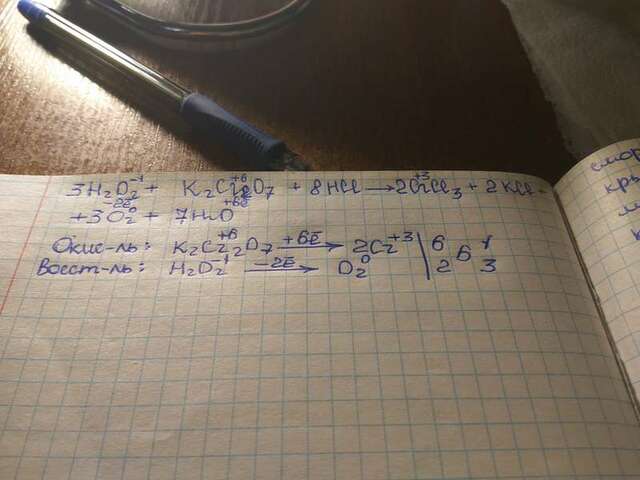 3H₂O₂⁻¹ + K₂Cr₂⁺⁶O₇ + 8HCl → 2Cr⁺³Cl₃ + 2KCl
-2ē +6ē
+ 3O₂⁰ + 7H₂O
Окис-ль: K₂Cr₂⁺⁶O₇ +6ē → 2Cr⁺³ | 6 6 1
Восст-ль: H₂O₂⁻¹ -2ē → O₂⁰ | 2 3